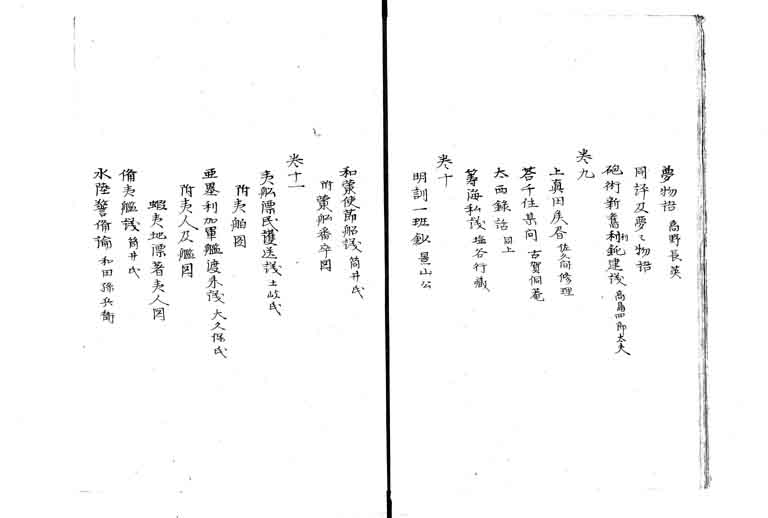 夢物語 高野長英
同評及夢々物語
砲術新舊利鈍建議 高島四郎太夫
巻九
上真田矦書 佐久间修理
荅千住某问 古賀侗菴
太西録話 同上
籌海私議 塩谷行蔵
巻十
明訓一班鈔 景山公
和蘭使節船議 筒井氏
附蘭船番卒図
巻十一
夷船漂民護送議 土岐氏
附夷舶图
亜墨利加軍艦渡来議 大久保氏
附夷人及艦図
蝦夷地漂著夷人図
備夷艦議 筒井氏
水陸警備論 和田孫兵衛